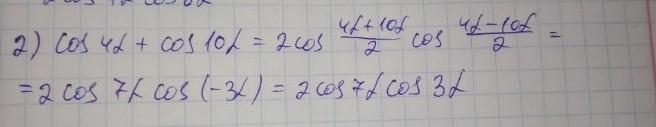 2) cos 4α + cos 10α = 2cos (4α+10α)/2 cos (4α-10α)/2 =
= 2 cos 7α cos (-3α) = 2cos 7α cos 3α